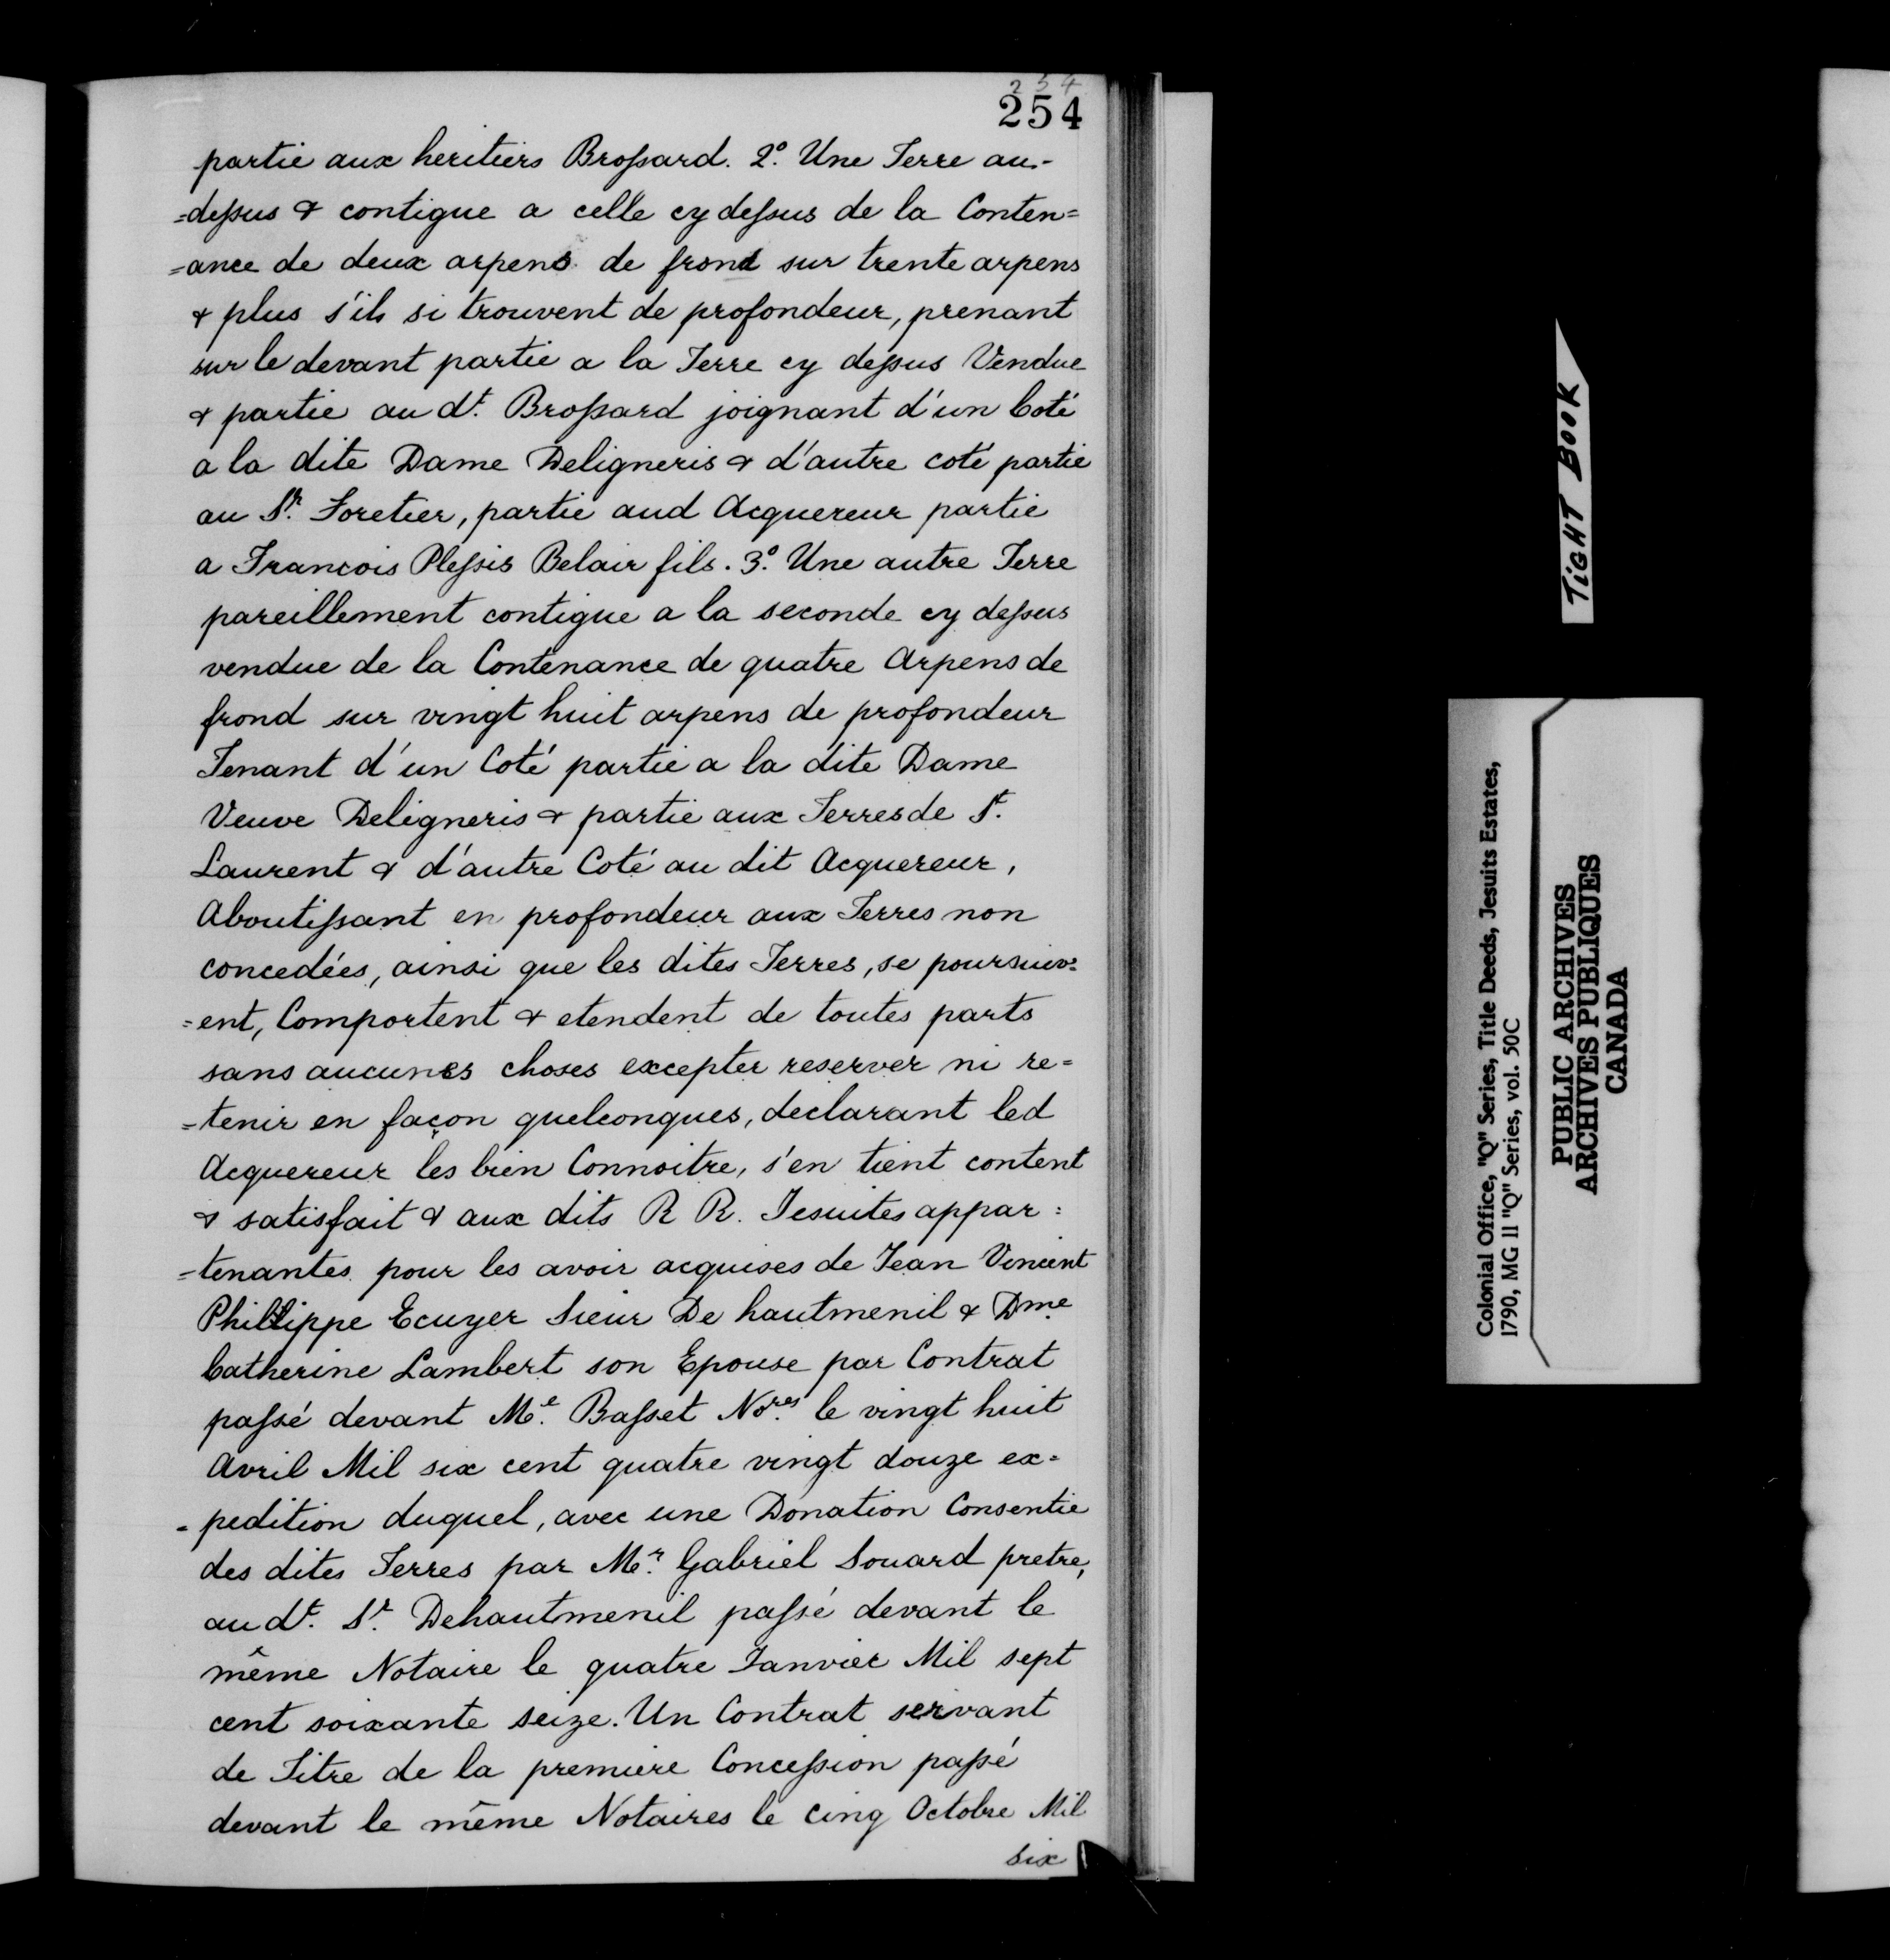 254
254
partie aux heritiers Broſsard. 2º. Une Terre au-
=deſsus & contigue a celle cy deſsus de la Conten=
=ance de deux arpens de frond sur trente arpens
& plus s'ils si trouvent de profondeur, prenant
sur le devant partie a la Terre cy deſsus Vendue
& partie au dt. Broſsard joignant d'un Coté
a la dite Dame Deligneris & d'autre coté partie
au Sr. Foretier, partie aud Acquereur partie
a Francois Pleſsis Belair fils. 3º. Une autre Terre
pareillement contigue a la seconde cy deſsus
vendue de la Contenance de quatre Arpens de
frond sur vingt huit arpens de profondeur
Tenant d'un Coté partie a la dite Dame
Veuve Deligneris & partie aux Terres de St.
Laurent & d'autre Coté au dit Acquereur,
Aboutiſsant en profondeur aux Terres non
concedées, ainsi que les dites Terres, se poursuiv=
=ent, Comportent & etendent de toutes parts
sans aucunes choses excepter reserver ni re=
=tenir en façon quelconques, declarant led
Acquereur les bien Connoitre, s'en tient content
& satisfait & aux dits R R. Jesuites appar=
=tenantes pour les avoir acquises de Jean Vincent
Phillippe Ecuyer Sieur De hautmenil & Dme.
Catherine Lambert son Epouse par Contrat
paſsé devant Me. Baſset Nores. le vingt huit
Avril Mil six cent quatre vingt douze ex=
=pedition duquel, avec une Donation Consentie
des dites Terres par Mr. Gabriel Souard pretre,
au dt. Sr. Dehautmenil paſsé devant le
même Notaire le quatre Janvier Mil sept
cent soixante seize. Un Contrat servant
de Titre de la premiere Conceſsion paſsé
devant le même Notaires le cinq Octobre Mil
six
TIGHT BOOK
Colonial Office, "Q" Series, Title Deeds, Jesuits Estates,
1790, MG 11 "Q" Series, vol. 50C
PUBLIC ARCHIVES
ARCHIVES PUBLIQUES
CANADA